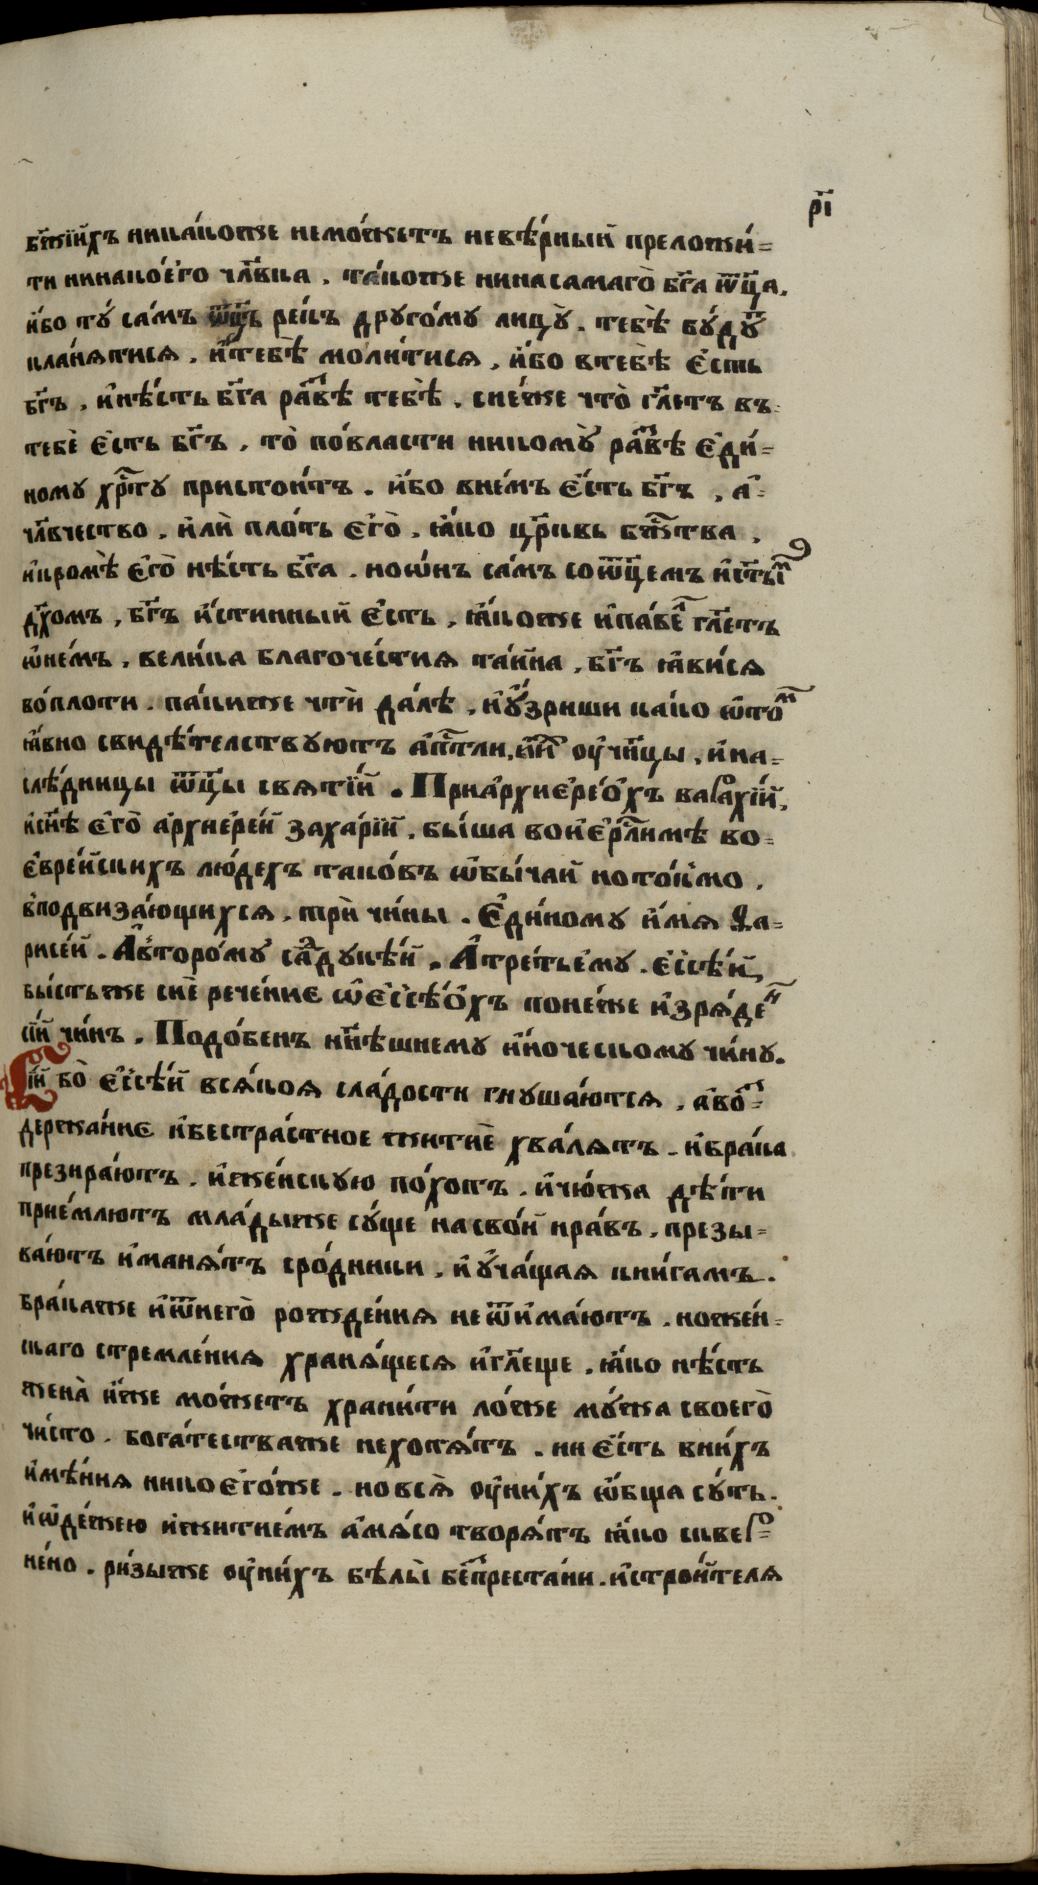 р҃і
бж҃іихъ никакоже неможетъ невѣрный преложи-
ти ниинакоего чл҃вка. такоже нинасамаго бг҃а ѿц҃а.
ибо ту самъ ѿц҃ъ рекъ другому лицу. тебѣ буду
кланятися. итебѣ молитися, ибо втебѣ єсть
бг҃ъ. инѣсть бг҃а развѣ тебѣ. сиеже что гл҃етъ въ
тебѣ єсть бг҃ъ, то повласти никому развѣ єди-
ному хрⷭ҇ту пристоитъ. ибо внемъ єсть бг҃ъ, а
чл҃вчество. или плоть єго. яко цр҃ковь бжⷭ҇тва,
икромѣ єго нѣсть бг҃а. ноѡнъ самъ соѿц҃емъ ист҃ымъ
дх҃омъ, бг҃ъ истинный єсть, якоже ипавелъ гл҃етъ
ѡнемъ. велика благочестия тайна, бг҃ъ явися
воплоти. пакиже чти далѣ, иузриши како ѡтомъ
явно свидѣтелствуютъ апⷭ҇тли, ихъ оученицы, ина-
слѣдницы ѿц҃ы святїи. Приархиєреохъ варахїи,
исн҃ѣ єго архиереи захарїи. быша воиєрⷭ҇лимѣ во
єврейскихъ людехъ таковъ ѡбычай потоимо,
вподвизающихся. три чины. Єдиному имя Фа-
рисеи. Авторому саддукѣи. Атретьему. єссѣи,
бысть же сие речение ѡєссѣохъ понеже изряден
сїи чинъ. Подобенъ нн҃ѣшнему иноческому чину.
Сїи бо єссѣи всякоя сладости гнушаются, авоз-
держание ибестрастное житие хвалятъ. ибрака
презираютъ. иженскую похоть. ичюжа дѣти
приемлютъ младыже суще насвой нравъ. презы-
ваютъ иманятъ сродники, иучащая книгамъ.
бракаже иѿнего рождения неѿимаютъ. ножен-
скаго стремления хранящеся игл҃еще. яко нѣсть
жена иже можетъ хранити ложе мужа своего
чисто. богатестваже нехотятъ. ни єсть вних
имѣния никоєгоже. новся оуних ѡбща суть.
иѡдежею ижитиемъ амясо творятъ яко сквер-
нено. ризыже оунихъ бѣлы беспрестани. истроителя